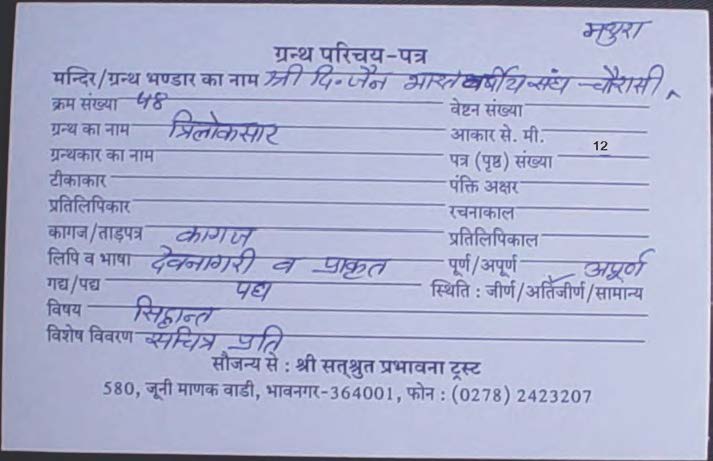 मथुरा
ग्रन्थ परिचय-पत्र
मन्दिर/ग्रन्थ भण्डार का नाम श्री दि॰ जैन भारतवर्षीय संघ - चौरासी
क्रम संख्या ५४ वेष्टन संख्या
ग्रन्थ का नाम त्रिलोकसार आकार से. मी.
ग्रन्थकार का नाम पत्र (पृष्ठ) संख्या 12
टीकाकार पंक्ति अक्षर
प्रतिलिपिकार रचनाकाल
कागज/ताड़पत्र कागज प्रतिलिपिकाल
लिपि व भाषा देवनागरी व प्राकृत पूर्ण/अपूर्ण अपूर्ण
गद्य/पद्य पद्य स्थिति : जीर्ण/अतिजीर्ण/सामान्य
विषय सिद्धान्त
विशेष विवरण सचित्र प्रति
सौजन्य से : श्री सत्श्रुत प्रभावना ट्रस्ट
580, जूनी माणक वाडी, भावनगर-364001, फोन : (0278) 2423207